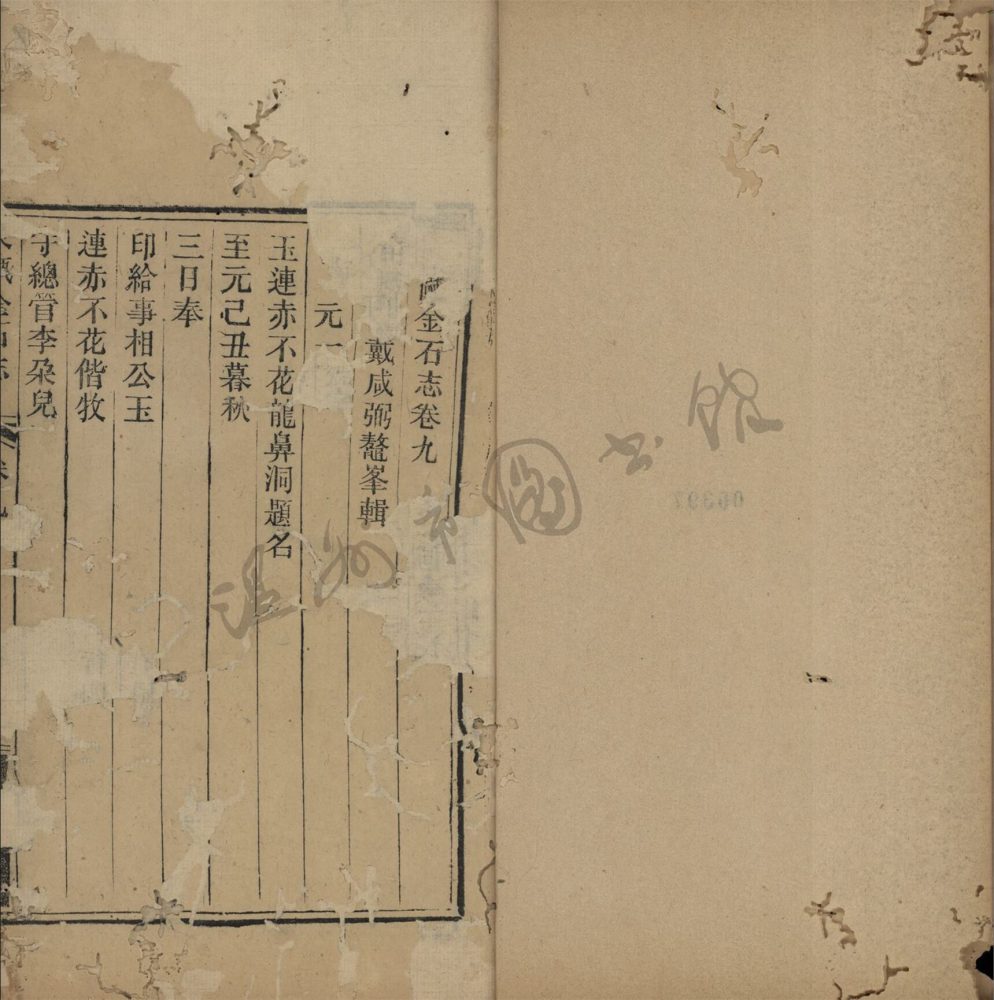 金石志卷九
戴咸弼鼇峯輯
元一
玉連赤不花龍鼻洞題名
至元己丑暮秋
三日奉
印給事相公玉
連赤不花偕牧
守總管李朵兒
温州市圖书館